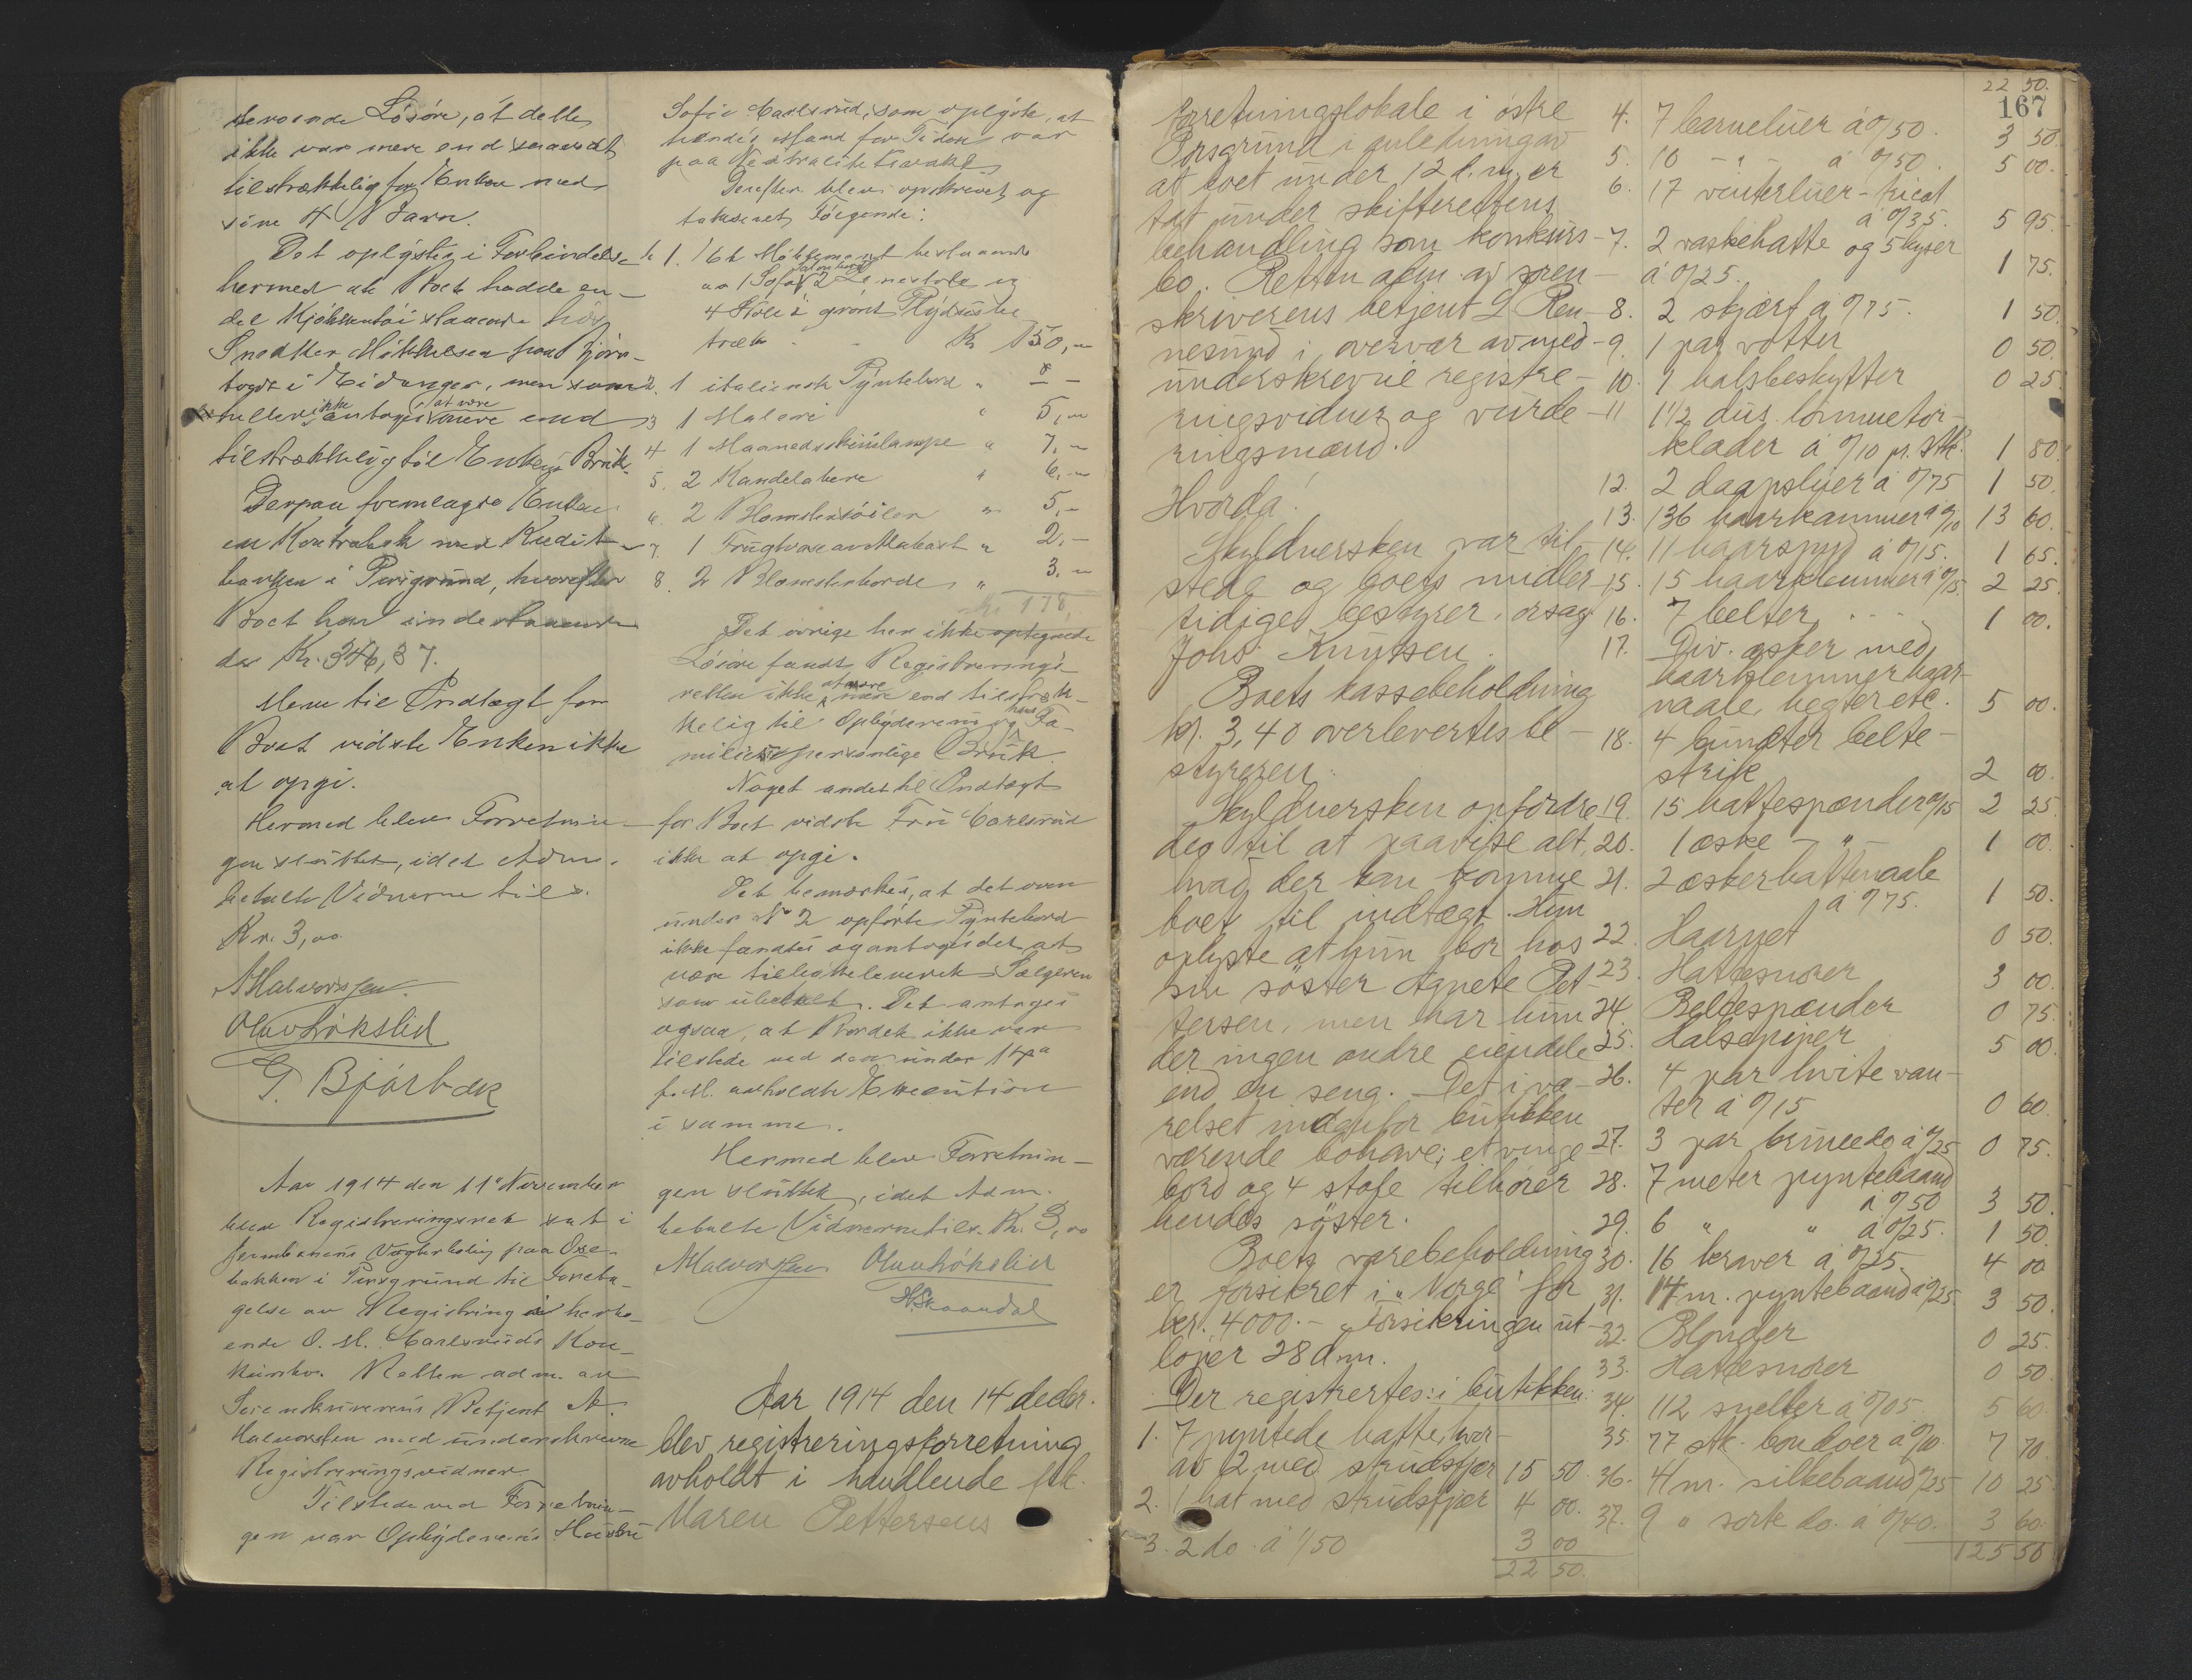 Løsøre, at dette
ikke var mere end
tilstrækkelig for Enken med
sine 4 Barn.
Det oplystes i Forbindelse
hermed at Boet hadde en
del Kjøkkentøi staaende hos
Snedker Mikkelsen paa
i Eidanger, men som
heller ikke antoges at være mere end
tilstrækkelig til Enkens Bruk.
Derpaa fremlagde Enken
en Kontrabok med Kredit-
banken i Porsgrund, hvorefter
Boet har indestaaende
der Kr. 346,87.
Mere til Indtægt for
Boet vidste Enken ikke
at opgi.
Hermed blev Forretnin-
gen sluttet, idet Adm.
betalte Vidnerne tils.
Kr. 3,00
A Halvorsen.
Olav Løkslid
G. Bjørbæk
Aar 1914 den 11te November
blev Registreringsret sat i
Jernbanens Vogterbolig paa Oxe-
bakken i Porsgrund til Foreta-
gelse av Registrering i herhø-
ende O. M. Carlsruds Kon-
kursbo. Retten adm. av
Sorenskriverens Betjent A.
Halvorsen med underskrevne
Registreringsvidner.
Tilstede ved Forretnin-
gen var Opbyderens Hustru
Sofie Carlsrud, som oplyste, at
hendes Mand for Tiden var
paa
Derefter blev opskrevet og
taksert Følgende:
1. 1 Et Møblement bestaaende
av 1 Sofa, 2 Lenestole og
4 Stole i grønt Plydsbe-
træk Kr 150,-
2. 1 italiensk Pyntebord " -
3 1 Maleri " 5,-
4 1 Maanedsskinslampe " 7,-
5. 2 Kandelabere " 6,-
6. 2 Blomstersøiler " 5,-
7. 1 Frugtvase av Alabast " 2.-
8. 2 Blomsterborde " 3.-
Kr 178,
Det øvrige her ikke optegnede
Løsøre fandt Registrerings-
retten ikke at være mere end tilstræk-
kelig til Opbyderens og hans Fa-
milies personlige Bruk.
Noget andet til Indtægt
for Boet vidste Fru Carlsrud
ikke at opgi.
Det bemærkes, at det oven
under No 2 opførte Pyntebord
ikke fandtes og antoges det at
være tilbakeleveret Sælgeren
som ubetalt. Det antoges
ogsaa, at Bordet ikke var
tilstede ved den under 14de
f. M. avholdte Execution
i samme.
Hermed blev Forretnin-
gen sluttet, idet Adm.
betalte Vidnerne tils. Kr. 3,00
A Halvorsen Olav Løkslid
H. Skaardal
Aar 1914 den 14 decbr.
blev registreringsforretning
avholdt i handlende frk.
Maren Pettersens
167
forretningslokale i østre
Porsgrund i anledning av
at boet under 12 d. m. er
tat under skifterettens
behandling som konkurs-
bo. Retten adm. av soren-
skriverens betjent L Ren-
nesund i overvær av med-
underskrevne registre-
ringsvidner og vurde-
ringsmænd.
Hvorda!
Skyldnersken var til-
stede og boets midler-
tidige bestyrer, orsag.
Johs. Knutsen.
Boets kassebeholdning
kr. 3,40 overlevertes be-
styreren.
Skyldnersken opfordre-
des til at paavise alt,
hvad der kan komme
boet til indtægt. Hun
oplyste at hun bor hos
sin søster Agnete Pet-
tersen, men har hun
der ingen andre eiendele
end en seng. Det i væ-
relset indenfor butikken
værende bohave; et vinge-
bord og 4 stole tilhører
hendes søster.
Boets varebeholdning
er forsikret i "Norge" for
kr. 4000.- Forsikringen ut-
løper 28 d. m.
Der registrertes: i butikken:
1. 7 pyntede hatte, hvor-
av 2 med strudsfjær 15 50.
2. 1 hat med strudsfjær 4 00.
3. 2 do. á 1/50 3 00
22 50.
22 50.
4. 7 barneluer á 0/50. 3 50.
5. 10 - " - á 0/50. 5 00.
6. 17 vinterluer - tricot
á 0/35. 5 95.
7. 2 vaskehatte og 5 kyser
á 0/25. 1 75.
8. 2 skjærf á 0/75. 1 50.
9. 1 par votter 0 50.
10. 1 halsbeskytter 0 25.
11 1 1/2 dus. lommetør-
klæder á 0/10 pr. stk. 1 80.
12. 2 daapsluer á 0/75 1 50.
13. 136 haarkammer á 0/10 13 60.
14. 11 haarspyd á 0/15. 1 65.
15. 15 haarklemmer á 0/15. 2 25.
16. 7 belter 1 00.
17. Div. æsker med
haarklemmer haar-
naale, hegter etc. 5 00.
18. 4 bundter belte-
strik 2 00.
19. 15 hattespænder á 0/15 2 25.
20. 1 æske - " - 1 00.
21. 2 æsker hattenaale
á 0/75. 1 50.
22. Haarnet 0 50.
23. Hattesnorer 3 00.
24. Beltespænder 0 75.
25. Halspiper 5 00.
26. 4 par hvite van-
ter á 0/15 0 60.
27. 3 par brune do á 0/25 0 75.
28. 7 meter pyntebaand
á 0/50 3 50.
29. 6 " " á 0/25. 1 50.
30. 16 kraver á 0/25 4 00
31. 14 m. pyntebaand á 0/25 3 50.
32. Blonder 0 25.
33. Hattesnorer 0 50.
34. 112 sneller á 0/05. 5 60.
35. 77 stk. bondoer á 0/10. 7 70.
36. 41 m. silkebaand 0/25 10 25
37. 9 " sorte do. á 0/40. 3 60.
125 50